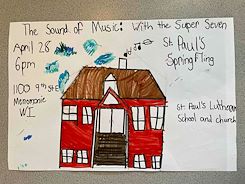 The Sound of Music: With the Super Seven
April 28
6pm
1100 9th St E
Menomonie
WI
St. Paul's
Spring Fling
St. Paul's Lutheran
School and church